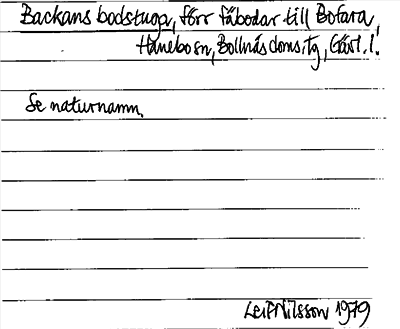 Backans bodstuga, förr fäbodar till Bofara
Hanebo sn, Bollnäs doms.tg, Gävl. l.
Se naturnamn.
Leif Nilsson 1979